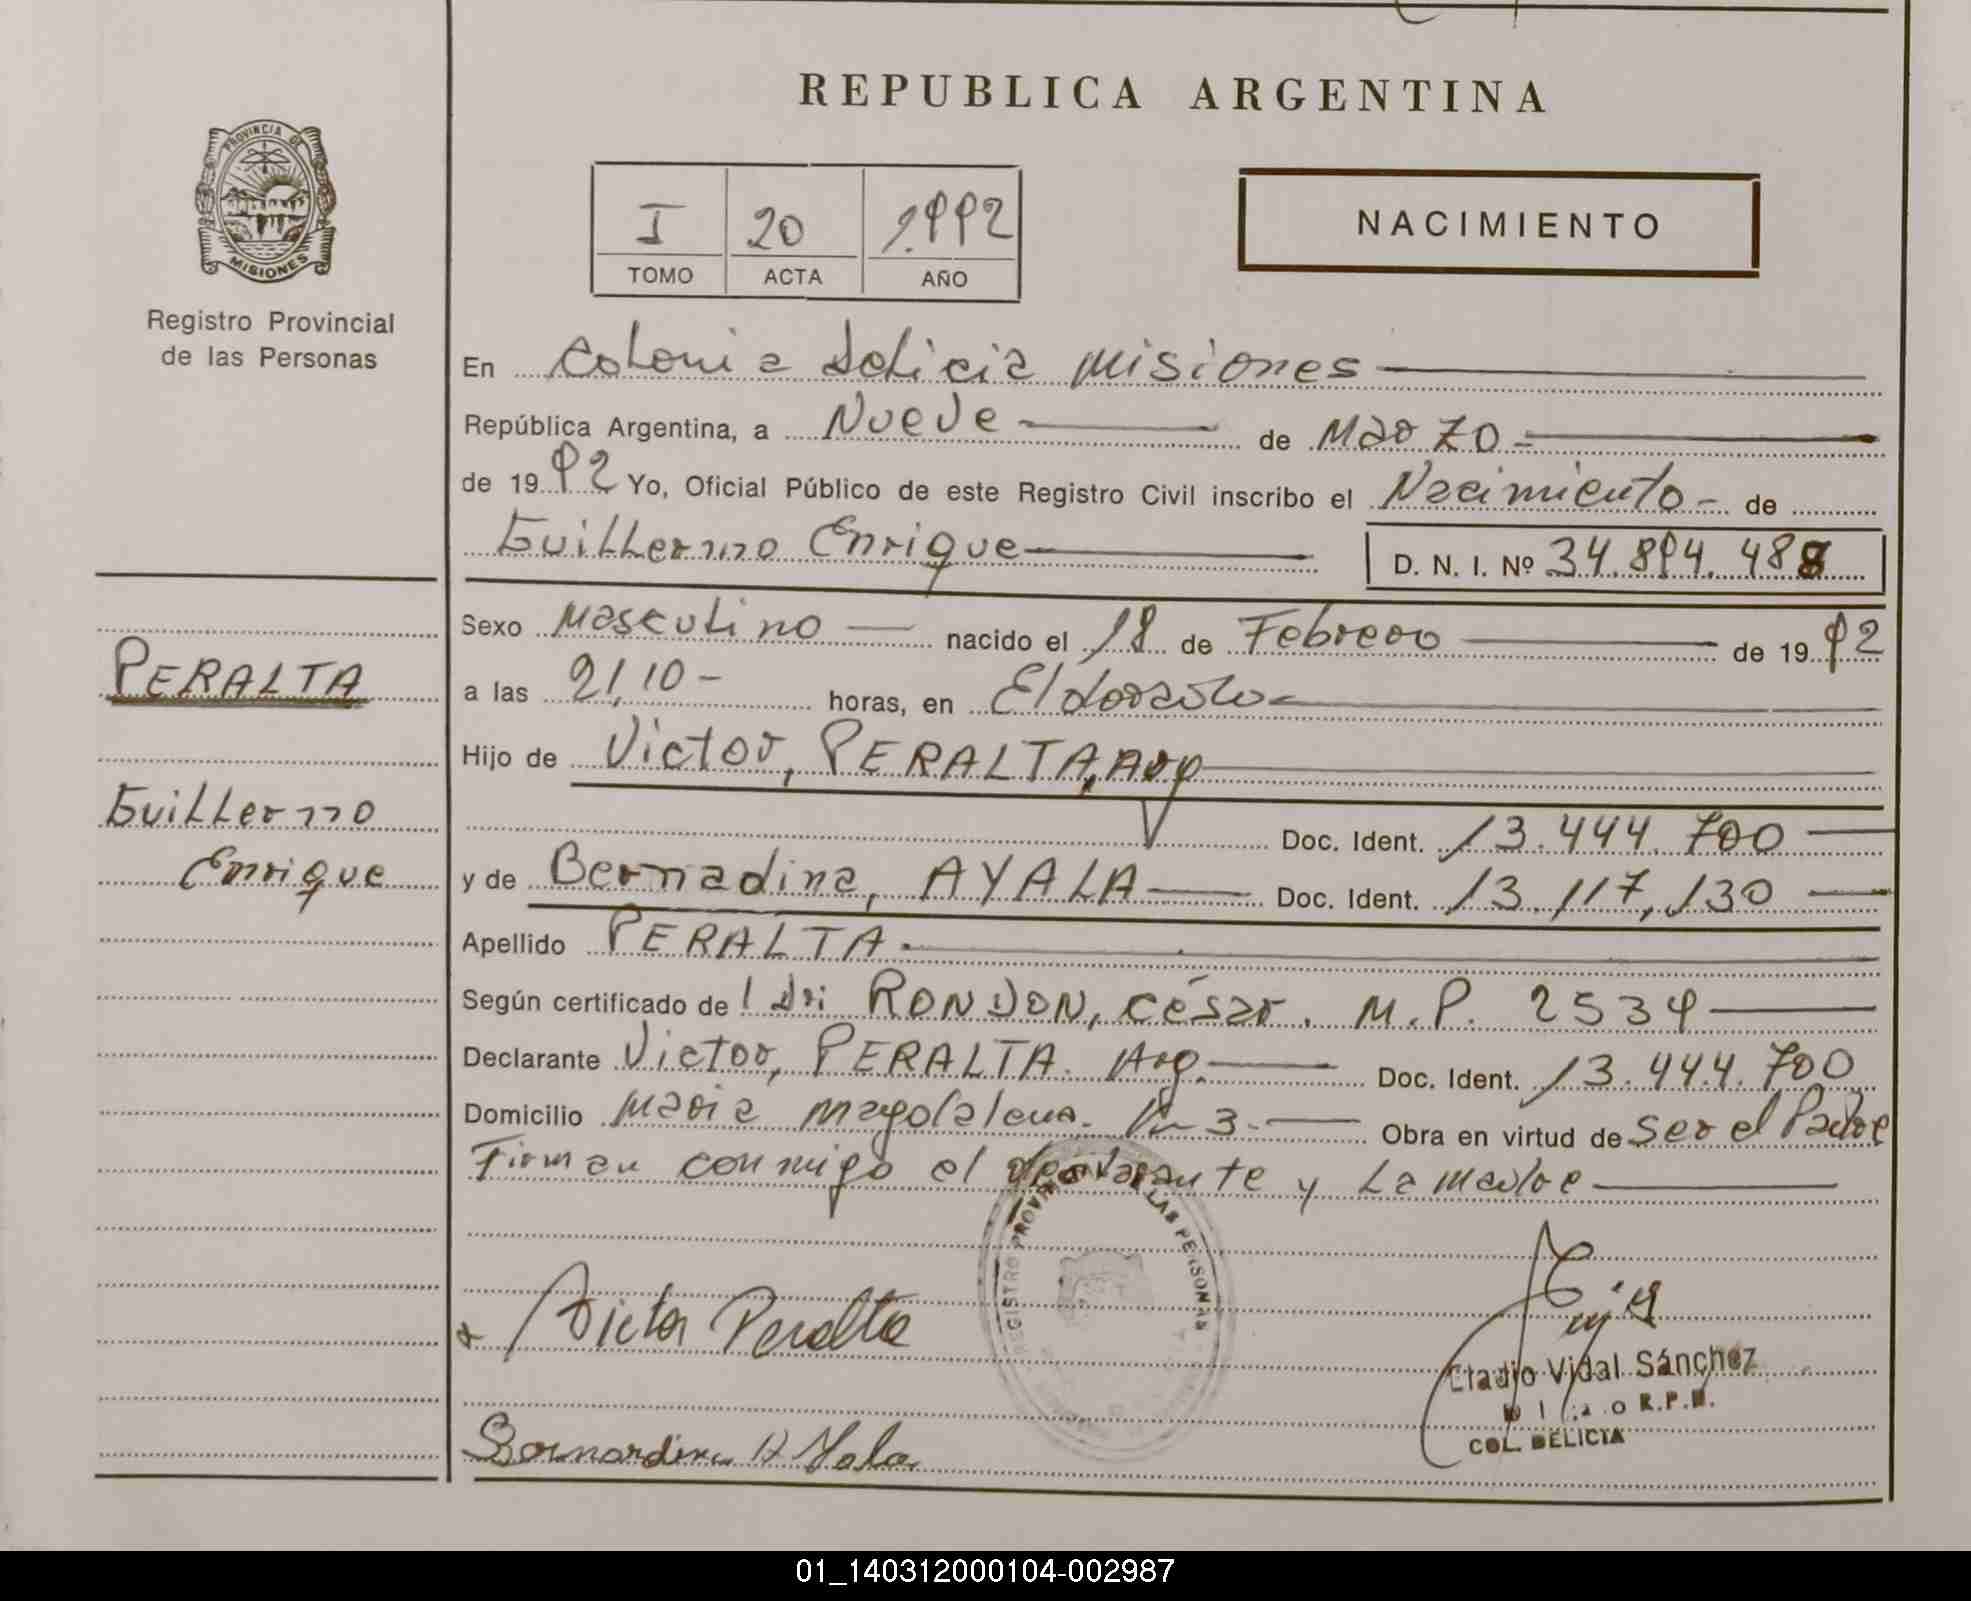 REPUBLICA ARGENTINA
PROVINCIA DE
MISIONES
Registro Provincial
de las Personas
I 20 1992
TOMO ACTA AÑO
NACIMIENTO
En Colonia Delicia Misiones
República Argentina, a Nueve de Marzo
de 1992 Yo, Oficial Público de este Registro Civil inscribo el Nacimiento de
Guillermo Enrique D. N. I. Nº 34.894.488
Sexo Masculino nacido el 18 de Febrero de 1992
PERALTA
a las 21,10 horas, en Eldorado
Hijo de Victor, PERALTA, Arg
Guillermo
Enrique
Doc. Ident. 13.444.700
y de Bernadina, AYALA Doc. Ident. 13.117,130
Apellido PERALTA
Según certificado de RONDON, César. M.P. 2534
Declarante Victor, PERALTA. Arg. Doc. Ident. 13.444.700
Domicilio Maria Magdalena. Km 3. Obra en virtud de Ser el Padre
Firman conmigo el declarante y La Madre
REGISTRO PROVINCIAL DE LAS PERSONAS
Victor Peralta
Eladio Vidal Sánchez
R.P.P.
COL. DELICIA
Bernardina Ayala
01_140312000104-002987